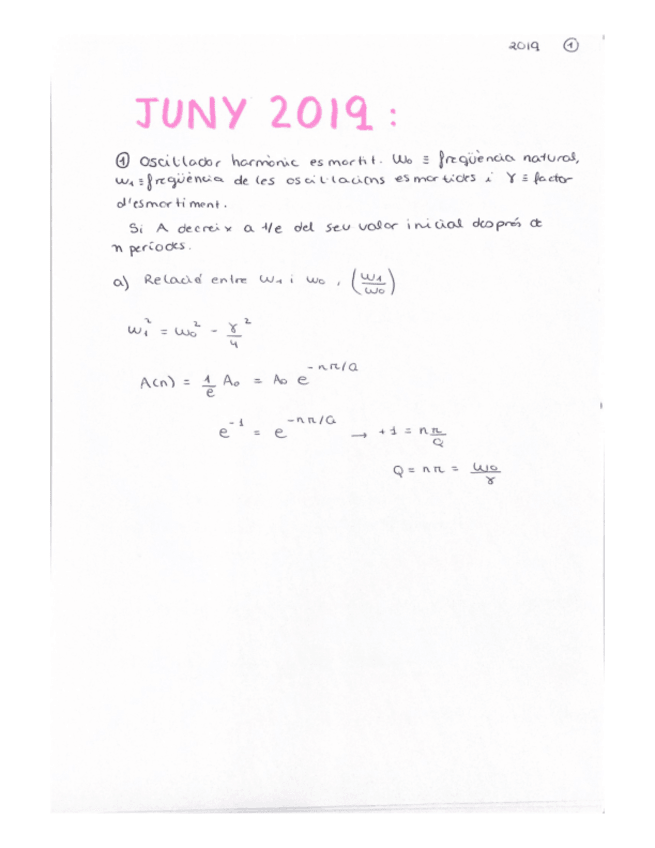 2019 ①
JUNY 2019:
① Oscil·lador harmònic esmortit. ω₀ ≡ freqüència natural,
ω₁ ≡ freqüència de les oscil·lacions esmortides i γ ≡ factor
d'esmortiment.
Si A decreix a 1/e del seu valor inicial després de
n períodes.
a) Relació entre ω₁ i ω₀, (ω₁/ω₀)
ω₁² = ω₀² - γ²/4
A(n) = 1/e A₀ = A₀ e^(-nπ/Q)
e^(-1) = e^(-nπ/Q) → +1 = nπ/Q
Q = nπ = ω₀/γ